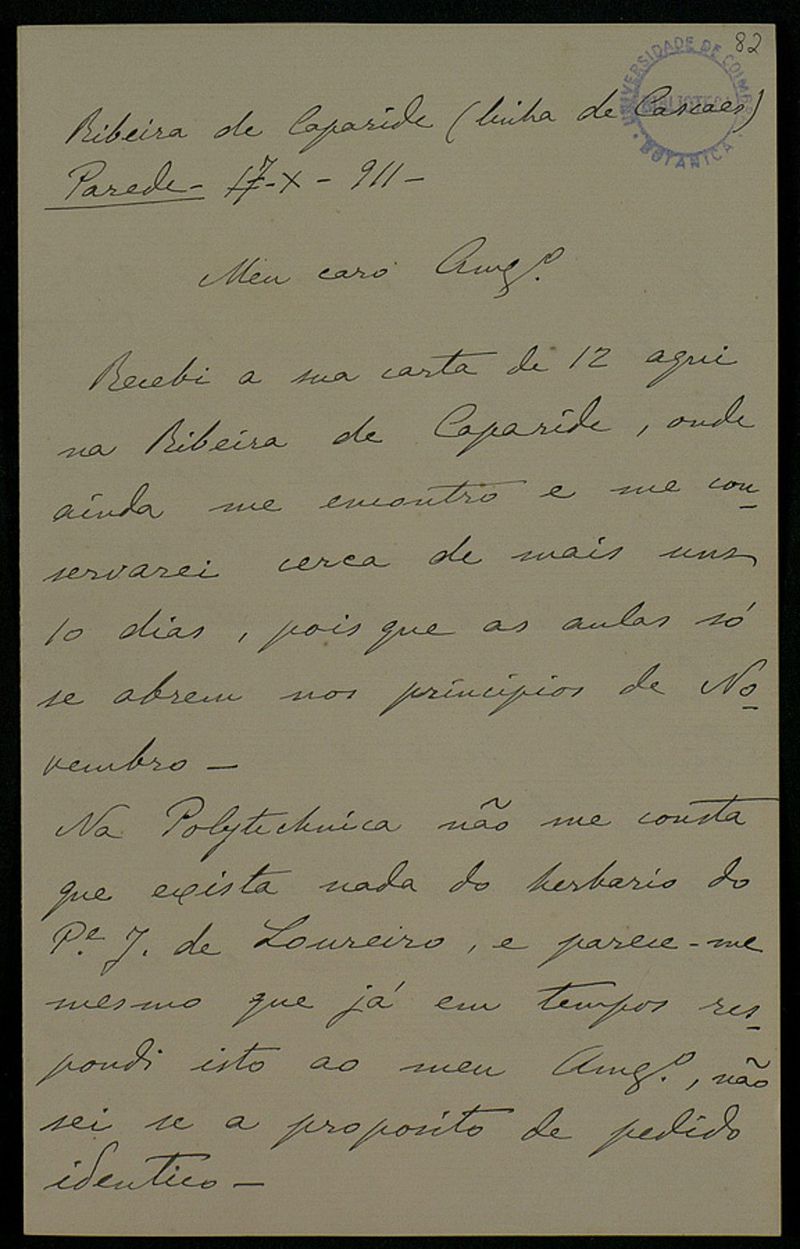 82
UNIVERSIDADE DE COIMBRA
BIBLIOTECA
BOTANICA
Ribeira de Caparide (linha de Cascaes)
Parede - 17-X-911-
Meu caro Amgº.
Recebi a sua carta de 12 aqui
na Ribeira de Caparide, onde
ainda me encontro e me con-
servarei cerca de mais uns
10 dias, pois que as aulas só
se abrem nos principios de No-
vembro -
Na Polytechnica não me consta
que exista nada do herbario do
Pe. J. de Loureiro, e parece-me
mesmo que já em tempos res-
pondi isto ao meu Amgº., não
sei se a proposito de pedido
identico -